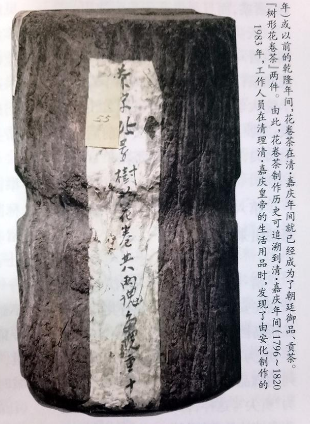 1983年,工作人员在清理清·嘉庆皇帝的生活用品时,发现了由安化制作的
『树形花卷茶』两件。由此,花卷茶制作历史可追溯到清·嘉庆年间(1796~1820
年)或以前的乾隆年间,花卷茶在清·嘉庆年间就已经成为了朝廷御品、贡茶。
55
樹花卷共兩塊重十